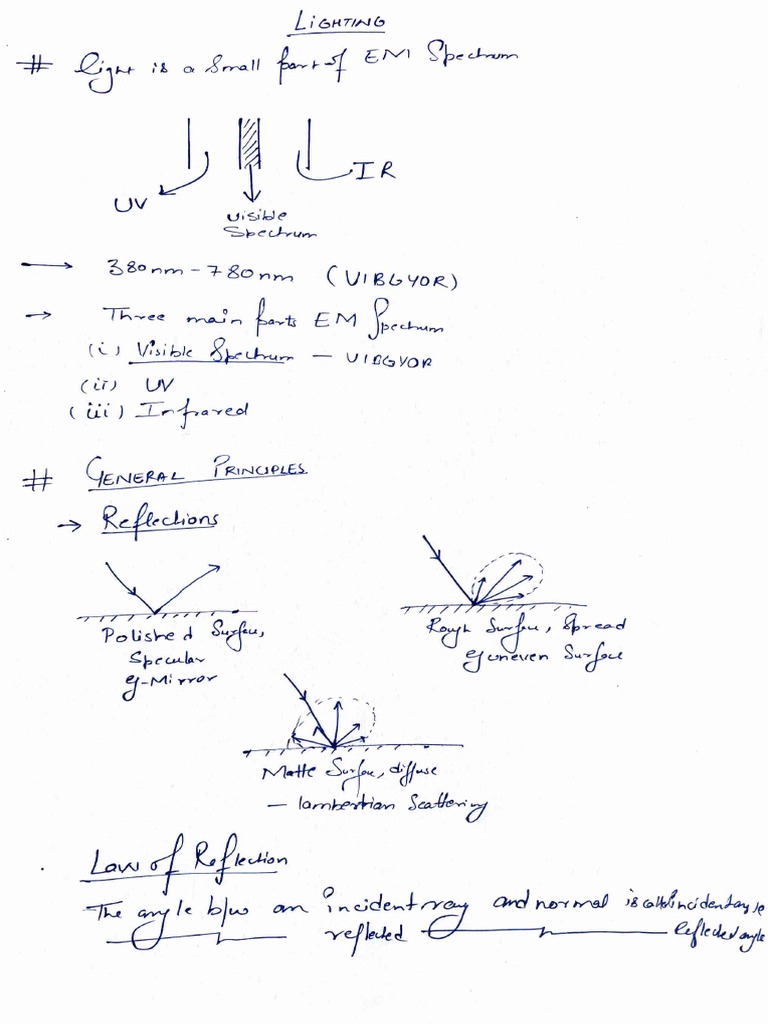 LIGHTING
# Light is a small part of EM Spectrum
UV
IR
Visible
Spectrum
→ 380nm - 780nm (VIBGYOR)
→ Three main parts EM Spectrum
(i) Visible Spectrum - VIBGYOR
(ii) UV
(iii) Infrared
# GENERAL PRINCIPLES
→ Reflections
Polished Surface,
Specular
eg-Mirror
Rough Surface, Spread
eg uneven Surface
Matte Surface, diffuse
- lambertian Scattering
Law of Reflection
The angle b/w an incident ray and normal is called incident angle
reflected reflected angle